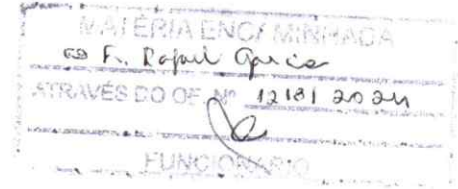 MATÉRIA ENCAMINHADA
F. Rafael Garcia
ATRAVÉS DO OF. Nº 1218/2024
FUNCIONÁRIO